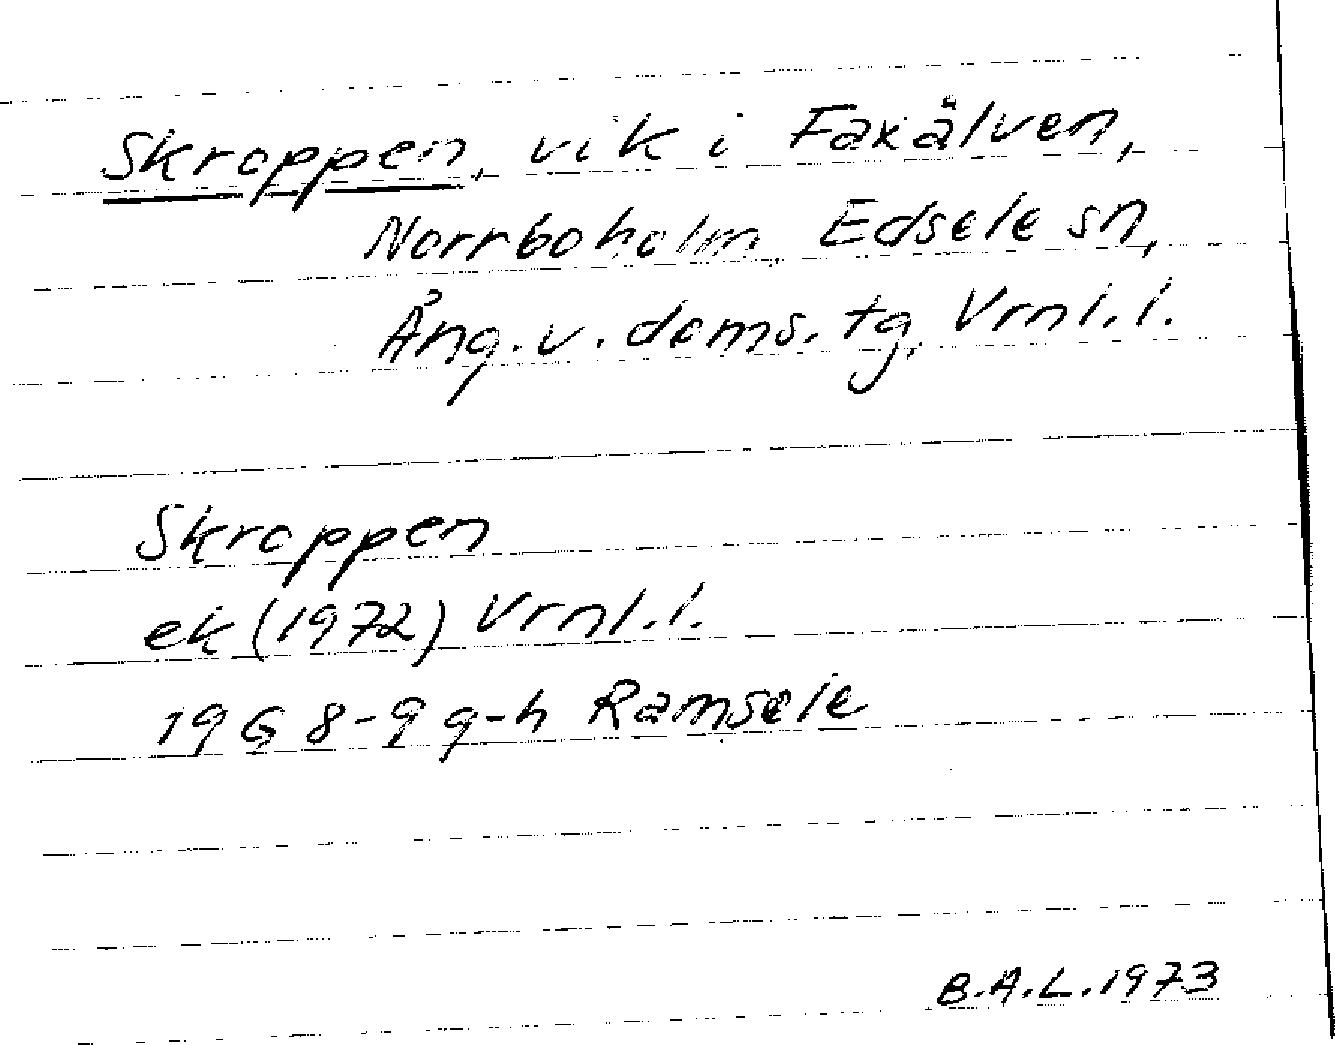 Skroppen, vik i Faxälven,
Norrboholm, Edsele sn,
Ång.v.doms.tg, Vrnl.l.
Skroppen
ek (1972) Vrnl.l.
19G 8-9 g-h Ramsele
B.A.L.1973